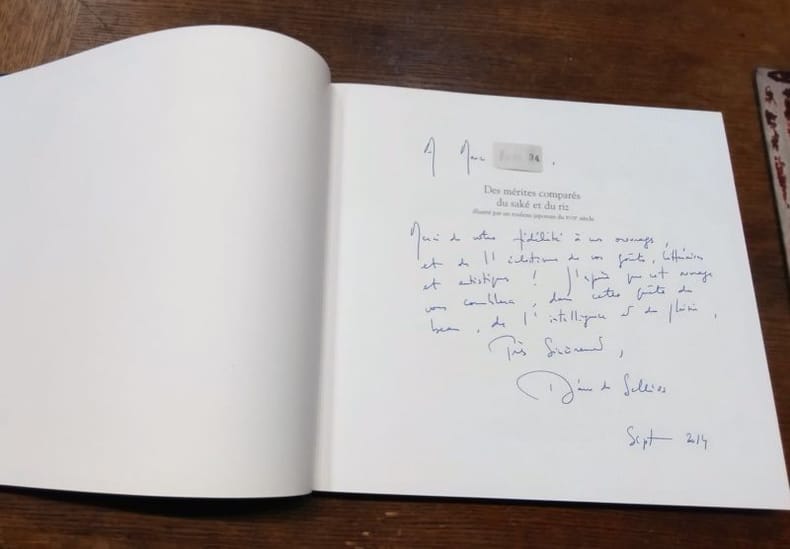 A Marc 34.
Des mérites comparés
du saké et du riz
illustré par un rouleau japonais du XVIIe siècle
Merci de votre fidélité à nos ouvrages,
et de l'éclectisme de vos goûts, littéraires
et artistiques ! J'espère que cet ouvrage
vous comblera, dans cette quête du
beau, de l'intelligence et du plaisir,
Très Sincèrement,
Diane de Selliers
Sept 2014